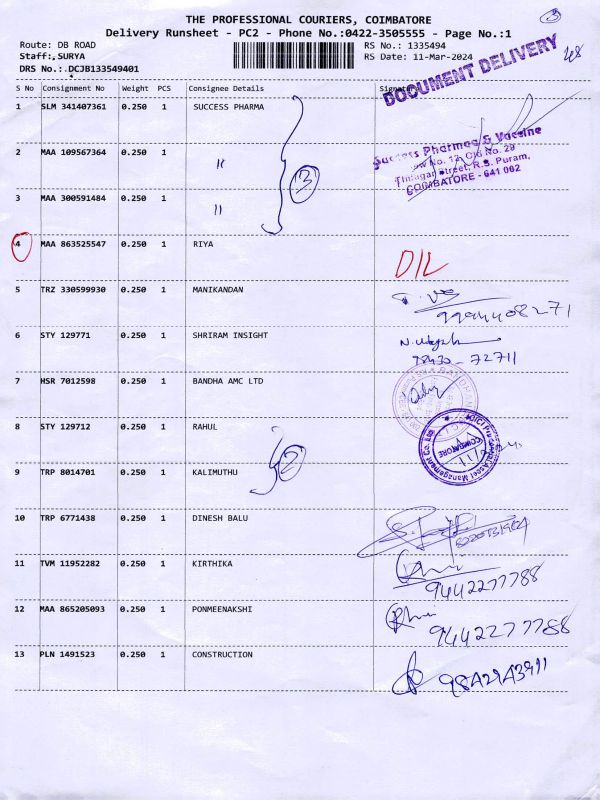 3
THE PROFESSIONAL COURIERS, COIMBATORE
Delivery Runsheet - PC2 - Phone No.:0422-3505555 - Page No.:1
Route: DB ROAD RS No.: 1335494
Staff: SURYA RS Date: 11-Mar-2024
DRS No.: DCJB133549401
DOCUMENT DELIVERY
S No Consignment No Weight PCS Consignee Details Signature
1 SLM 341407361 0.250 1 SUCCESS PHARMA
2 MAA 109567364 0.250 1 "
Success Pharmaa & Vaccine
COIMBATORE - 641 002
3
3 MAA 300591484 0.250 1 "
4 MAA 863525547 0.250 1 RIYA D/L
5 TRZ 330599930 0.250 1 MANIKANDAN
9994408271
6 STY 129771 0.250 1 SHRIRAM INSIGHT
78430-72711
7 HSR 7012598 0.250 1 BANDHA AMC LTD
8 STY 129712 0.250 1 RAHUL
ICICI Prudential Asset Management Co. Ltd.
COIMBATORE
2
9 TRP 8014701 0.250 1 KALIMUTHU
10 TRP 6771438 0.250 1 DINESH BALU
11 TVM 11952282 0.250 1 KIRTHIKA
9442277788
12 MAA 865205093 0.250 1 PONMEENAKSHI
9442277788
13 PLN 1491523 0.250 1 CONSTRUCTION